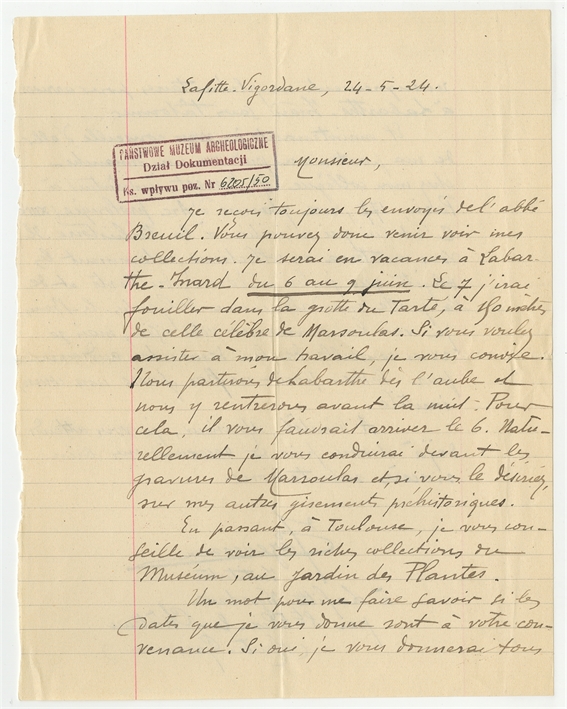 Lafitte-Vigordane, 24-5-24.
PAŃSTWOWE MUZEUM ARCHEOLOGICZNE
Dział Dokumentacji
Ks. wpływu poz. Nr 6205/50
Monsieur,
Je reçois toujours les envoyés de l'abbé
Breuil. Vous pouvez donc venir voir mes
collections. Je serai en vacances à Labar-
the-Inard du 6 au 9 juin. Le 7 j'irai
fouiller dans la grotte du Tarté, à 150 mètres
de celle célèbre de Marsoulas. Si vous voulez
assister à mon travail, je vous convie.
Nous partirons de Labarthe dès l'aube et
nous y rentrerons avant la nuit. Pour
cela, il vous faudrait arriver le 6. Natu-
rellement je vous conduirai devant les
gravures de Marsoulas et, si vous le désiriez,
sur mes autres gisements préhistoriques.
En passant, à Toulouse, je vous con-
seille de voir les riches collections du
Muséum, au Jardin des Plantes.
Un mot pour me faire savoir si les
dates que je vous donne sont à votre con-
venance. Si oui je vous donnerai tous